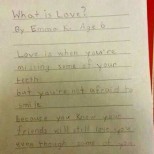 What is Love?
By Emma K. age 6
Love is when you're
missing some of your
teeth
but you're not afraid to
smile
because you know your
friends will still love you
even though some of you